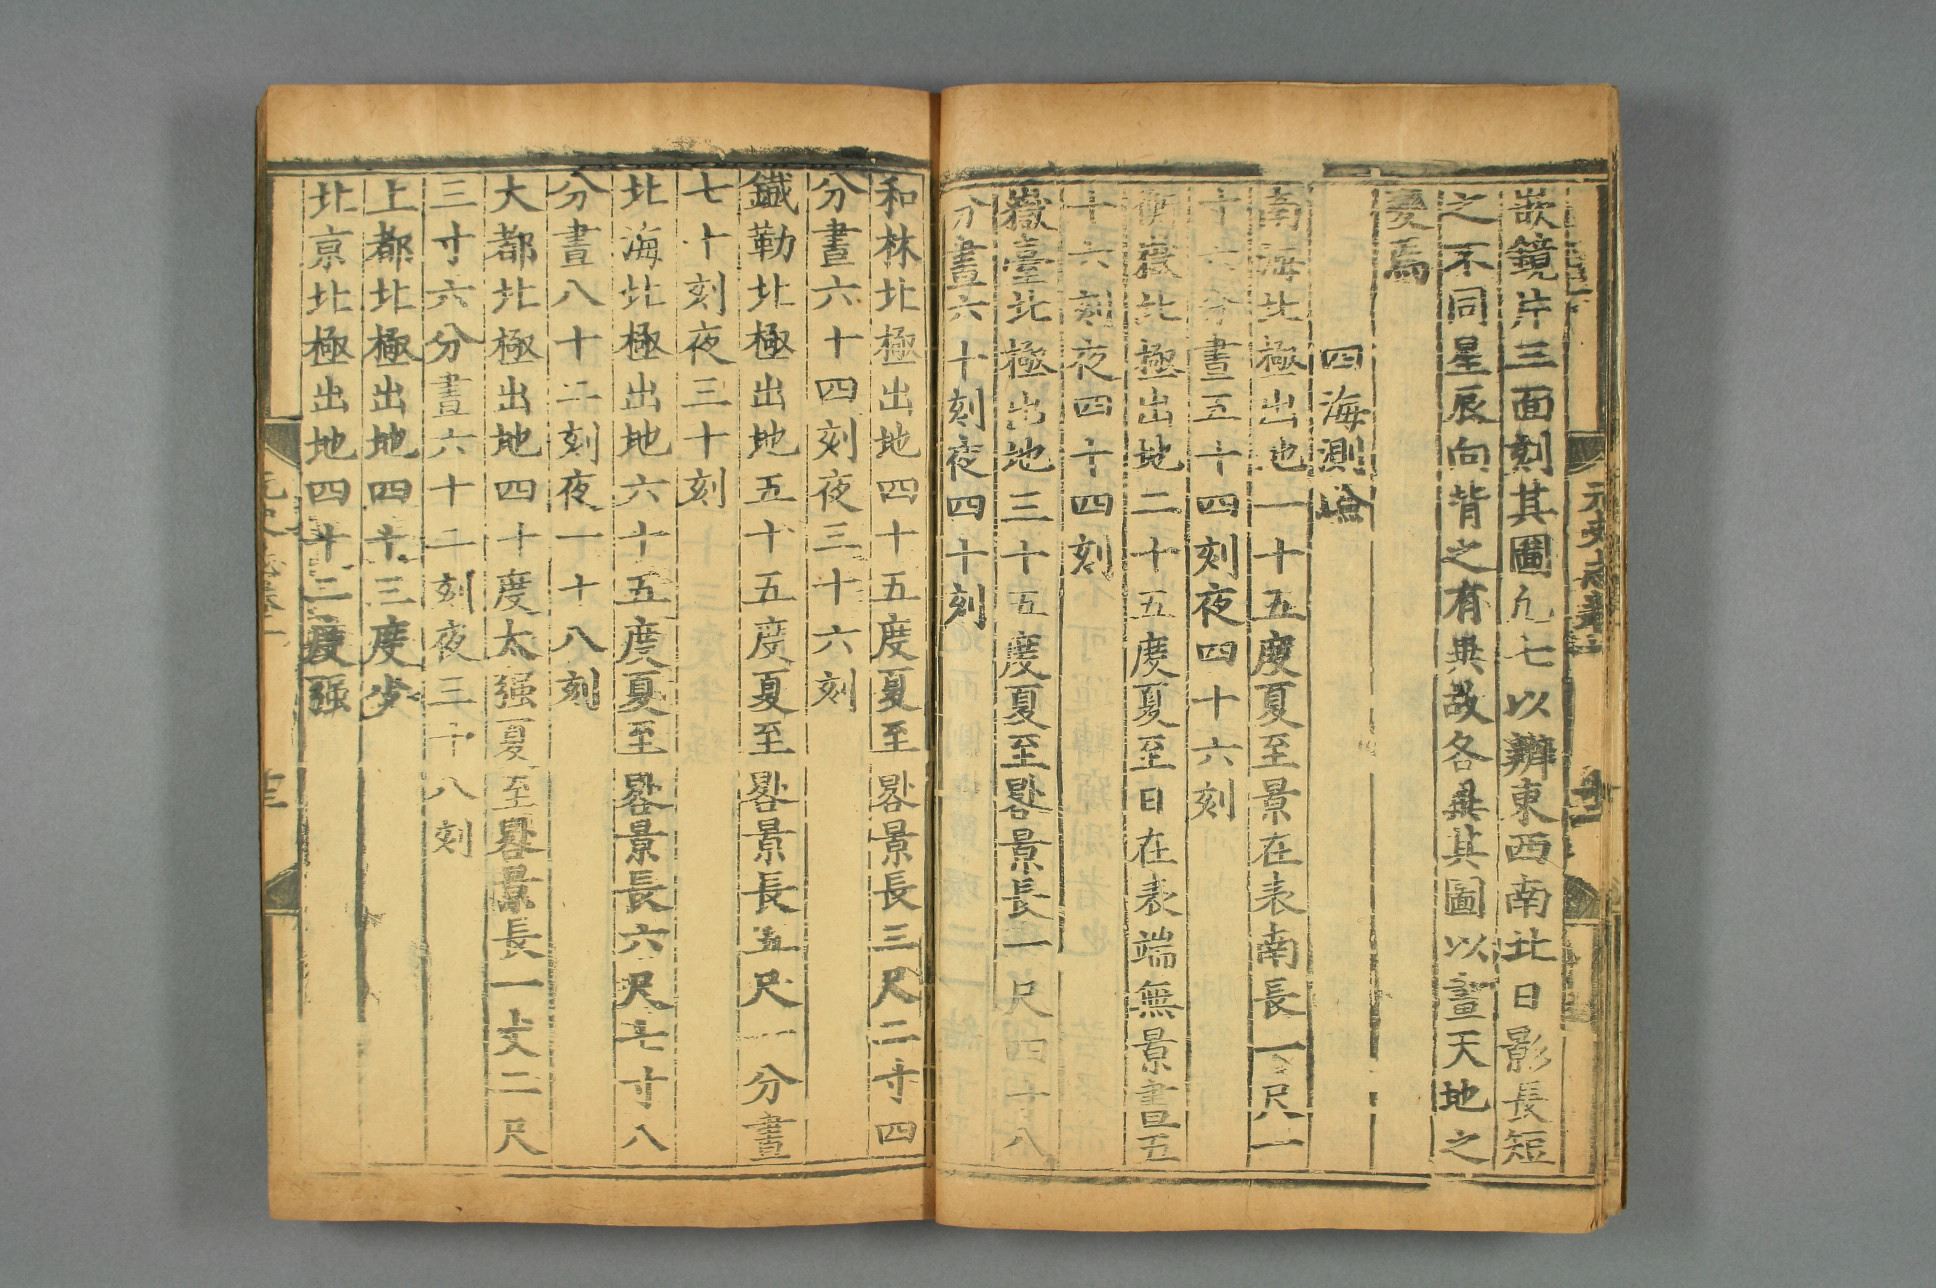 嵌鏡片三面刻其圖凡七以辨東西南北日影長短
之不同星辰向背之有異故各異其圖以畫天地之
變焉
四海測驗
南海北極出地一十五度夏至景在表南長一尺一
寸六分晝五十四刻夜四十六刻
衡嶽北極出地二十五度夏至日在表端無景晝五
十六刻夜四十四刻
嶽臺北極出地三十五度夏至晷景長一尺四寸八
分晝六十刻夜四十刻
和林北極出地四十五度夏至晷景長三尺二寸四
分晝六十四刻夜三十六刻
鐵勒北極出地五十五度夏至晷景長五尺一分晝
七十刻夜三十刻
北海北極出地六十五度夏至晷景長六尺七寸八
分晝八十二刻夜一十八刻
大都北極出地四十度太强夏至晷景長一丈二尺
三寸六分晝六十二刻夜三十八刻
上都北極出地四十三度少
北京北極出地四十二度强
十三